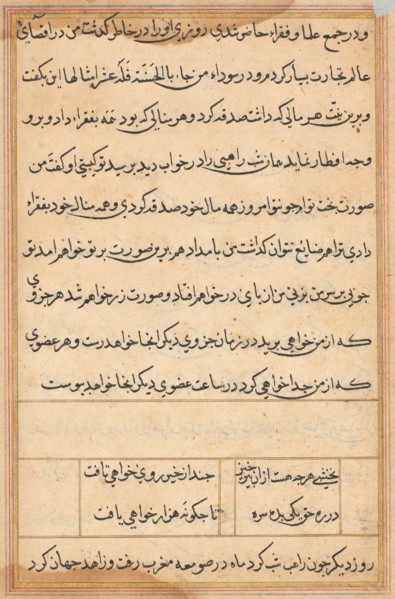 و در جمع علما و فقراء حاضر شدی روزی او را در خاطر گذشت من در اقصای
عالم تجارت بسیار کردم و در سوداء من جاء بالحسنة فله عشر امثالها این بگفت
و برین نیت هر مالی که داشت صدقه کرد و هر منالی که بود همه بفقراء داد و برو
وجه افطار نماند نماز شب راهبی را در خواب دید پرسید تو کیستی و گفت من
صورت بخت توام چو تو امروز همه مال خود صدقه کردی و همه منال خود بفقراء
دادی ترا هم ضایع نتوان گذاشت من بامداد هم برین صورت بر تو خواهم آمد تو
چوبی بر سر من بزنی من از پای در خواهم افتاد و صورت زر خواهم شد هر جزوی
که از من خواهی برید در زمان جزوی دیگر آنجا خواهد رست و هر عضوی
که از من جدا خواهی کرد در ساعت عضوی دیگر آنجا خواهد پیوست
نخشبی هرچه هست از آن خیز چند از خیر روی خواهی تافت
در ره حق یکی بده سره تا چگونه هزار خواهی یافت
روز دیگر چون راهب شب کرد ماه در صومعه مغرب رفت و زاهد جهان کرد